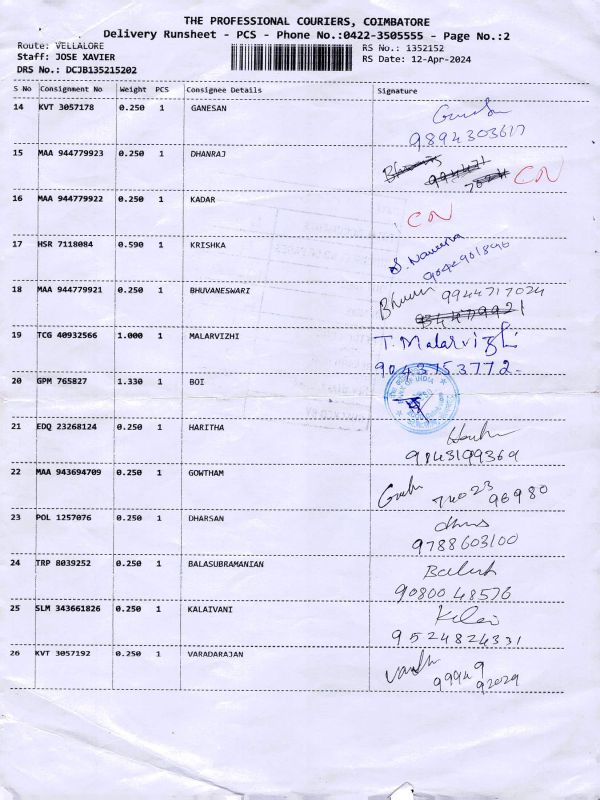 THE PROFESSIONAL COURIERS, COIMBATORE
Delivery Runsheet - PCS - Phone No.:0422-3505555 - Page No.:2
Route: VELLALORE
RS No.: 1352152
Staff: JOSE XAVIER
RS Date: 12-Apr-2024
DRS No.: DCJB135215202
S No Consignment No Weight PCS Consignee Details Signature
14 KVT 3057178 0.250 1 GANESAN
9894303617
15 MAA 944779923 0.250 1 DHANRAJ
CN
16 MAA 944779922 0.250 1 KADAR
CN
17 HSR 7118084 0.590 1 KRISHKA
18 MAA 944779921 0.250 1 BHUVANESWARI
9944717024
19 TCG 40932566 1.000 1 MALARVIZHI T. Malarvizhi
9043753772-
20 GPM 765827 1.330 1 BOI
21 EDQ 23268124 0.250 1 HARITHA
9843199369
22 MAA 943694709 0.250 1 GOWTHAM
96980
23 POL 1257076 0.250 1 DHARSAN
9788603100
24 TRP 8039252 0.250 1 BALASUBRAMANIAN
90800 48576
25 SLM 343661826 0.250 1 KALAIVANI
9524824331
26 KVT 3057192 0.250 1 VARADARAJAN
99949
92029